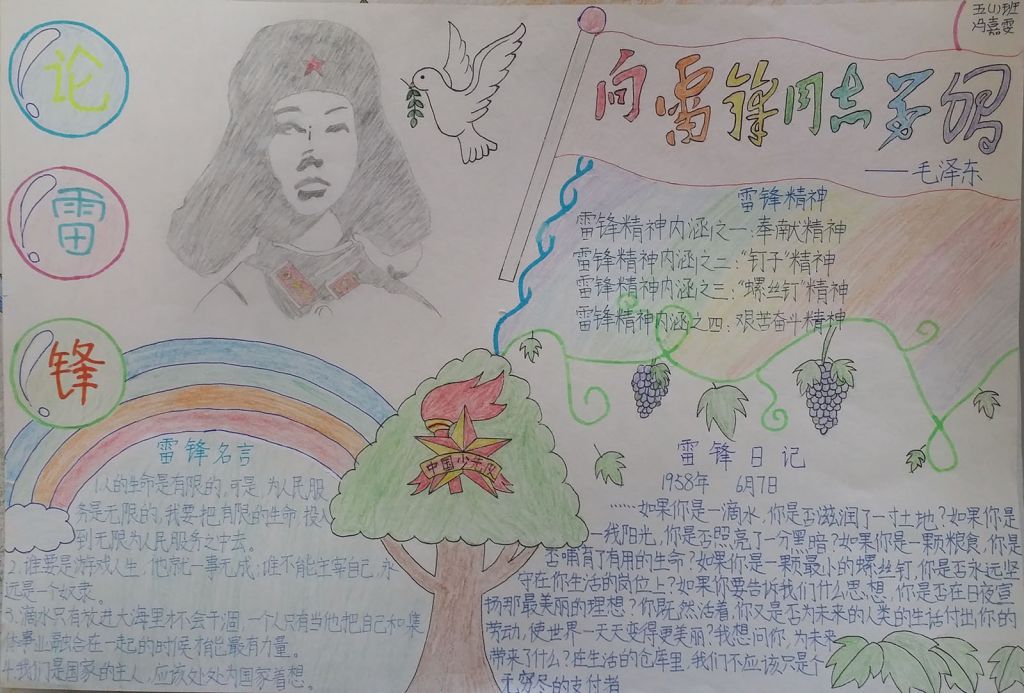 五(1)班
冯嘉雯
论
雷
锋
向雷锋同志学习
——毛泽东
雷锋精神
雷锋精神内涵之一:奉献精神
雷锋精神内涵之二:“钉子”精神
雷锋精神内涵之三:“螺丝钉”精神
雷锋精神内涵之四:艰苦奋斗精神
中国少先队
雷锋名言
1.人的生命是有限的,可是,为人民服
务是无限的,我要把有限的生命,投入
到无限为人民服务之中去。
2.谁要是游戏人生,他就一事无成;谁不能主宰自己,永
远是一个奴隶。
3.滴水只有放进大海里才不会干涸,一个人只有当他把自己和集
体事业融合在一起的时候才能最有力量。
4.我们是国家的主人,应该处处为国家着想。
雷锋日记
1958年 6月7日
……如果你是一滴水,你是否滋润了一寸土地?如果你是
一线阳光,你是否照亮了一分黑暗?如果你是一颗粮食,你是
否哺育了有用的生命?如果你是一颗最小的螺丝钉,你是否永远坚
守在你生活的岗位上?如果你要告诉我们什么思想,你是否在日夜宣
扬那最美丽的理想?你既然活着,你又是否为未来的人类的生活付出你的
劳动,使世界一天天变得更美丽?我想问你,为未来
带来了什么?在生活的仓库里,我们不应该只是个
无穷尽的支付者